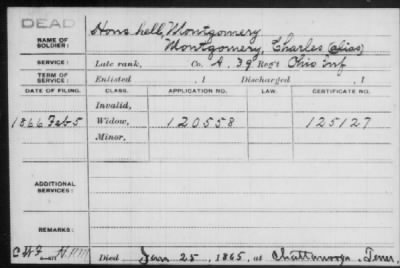 DEAD
NAME OF SOLDIER: Hons hell, Montgomery
Montgomery, Charles (alias)
SERVICE: Late rank, Co. A. 39 Reg't Ohio Inf
TERM OF SERVICE: Enlisted , 1 Discharged , 1
DATE OF FILING. CLASS. APPLICATION NO. LAW. CERTIFICATE NO.
Invalid,
1866 Feb 5 Widow, 120558 125127
Minor,
ADDITIONAL SERVICES:
REMARKS:
Died Jan 25, 1865, at Chattanooga, Tenn,